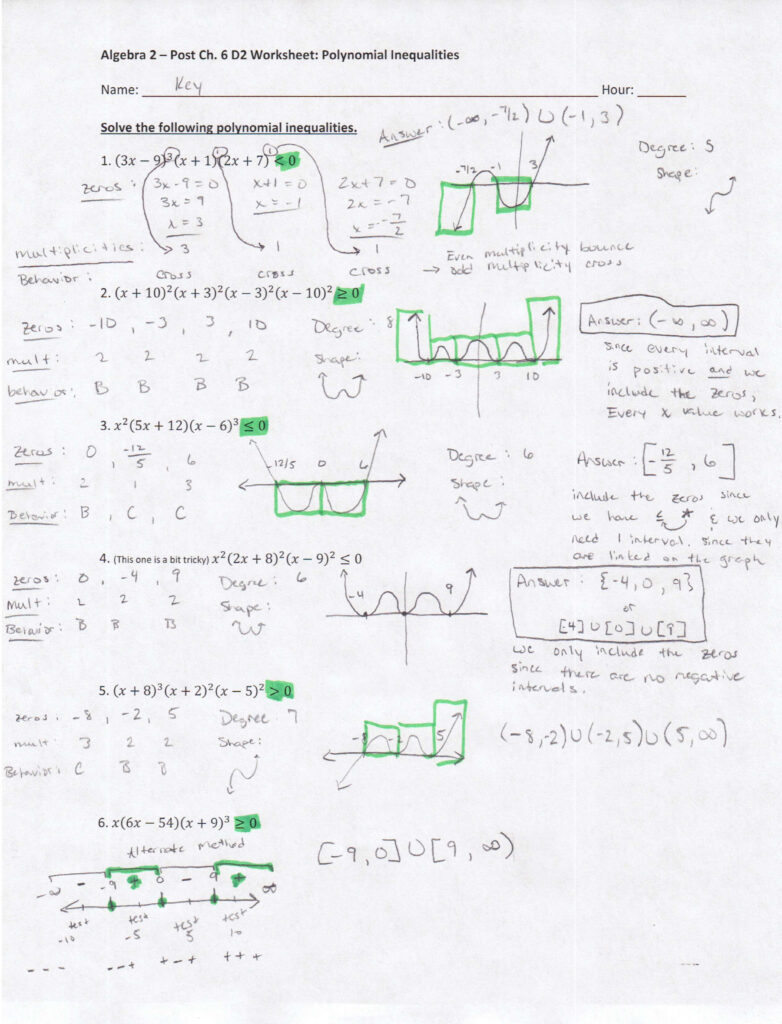 Algebra 2 – Post Ch. 6 D2 Worksheet: Polynomial Inequalities
Name: Key Hour:
Solve the following polynomial inequalities.
Answer: (-∞, -7/2) ∪ (-1, 3)
1. (3x − 9)³(x + 1)(2x + 7) < 0
1 1
zeros: 3x-9=0 x+1=0 2x+7=0
3x=9 x=-1 2x=-7
x=3 x=-7/2
-7/2 -1 3
Degree: 5
Shape:
multiplicities: 3 1 1
Behavior: cross cross cross
Even multiplicity bounce
→ odd multiplicity cross
2. (x + 10)²(x + 3)²(x − 3)²(x − 10)² ≥ 0
zeros: -10, -3, 3, 10 Degree: 8
mult: 2 2 2 2 Shape:
behavior: B B B B
-10 -3 3 10
Answer: (-∞, ∞)
since every interval
is positive and we
include the zeros,
Every x value works.
3. x²(5x + 12)(x − 6)³ ≤ 0
Zeros: 0, -12/5, 6
mult: 2 1 3
Behavior: B, C, C
-12/5 0 6
Degree: 6
Shape:
Answer: [-12/5, 6]
include the zeros since
we have ≤ & we only
need 1 interval, since they
are linked on the graph
4. (This one is a bit tricky) x²(2x + 8)²(x − 9)² ≤ 0
zeros: 0, -4, 9 Degree: 6
Mult: 2 2 2 Shape:
Behavior: B B B
-4 9
Answer: {-4, 0, 9}
or
[4] ∪ [0] ∪ [9]
we only include the zeros
since there are no negative
intervals.
5. (x + 8)³(x + 2)²(x − 5)² > 0
zeros: -8, -2, 5 Degree 7
mult: 3 2 2 Shape:
Behavior: C B B
-8 -2 5
(-8,-2)∪(-2,5)∪(5,∞)
6. x(6x − 54)(x + 9)³ ≥ 0
Alternate method
[-9, 0] ∪ [9, ∞)
-∞ - -9 + 0 - 9 + ∞
test test test test
-10 -5 5 10
- - - - - + + - + + + +